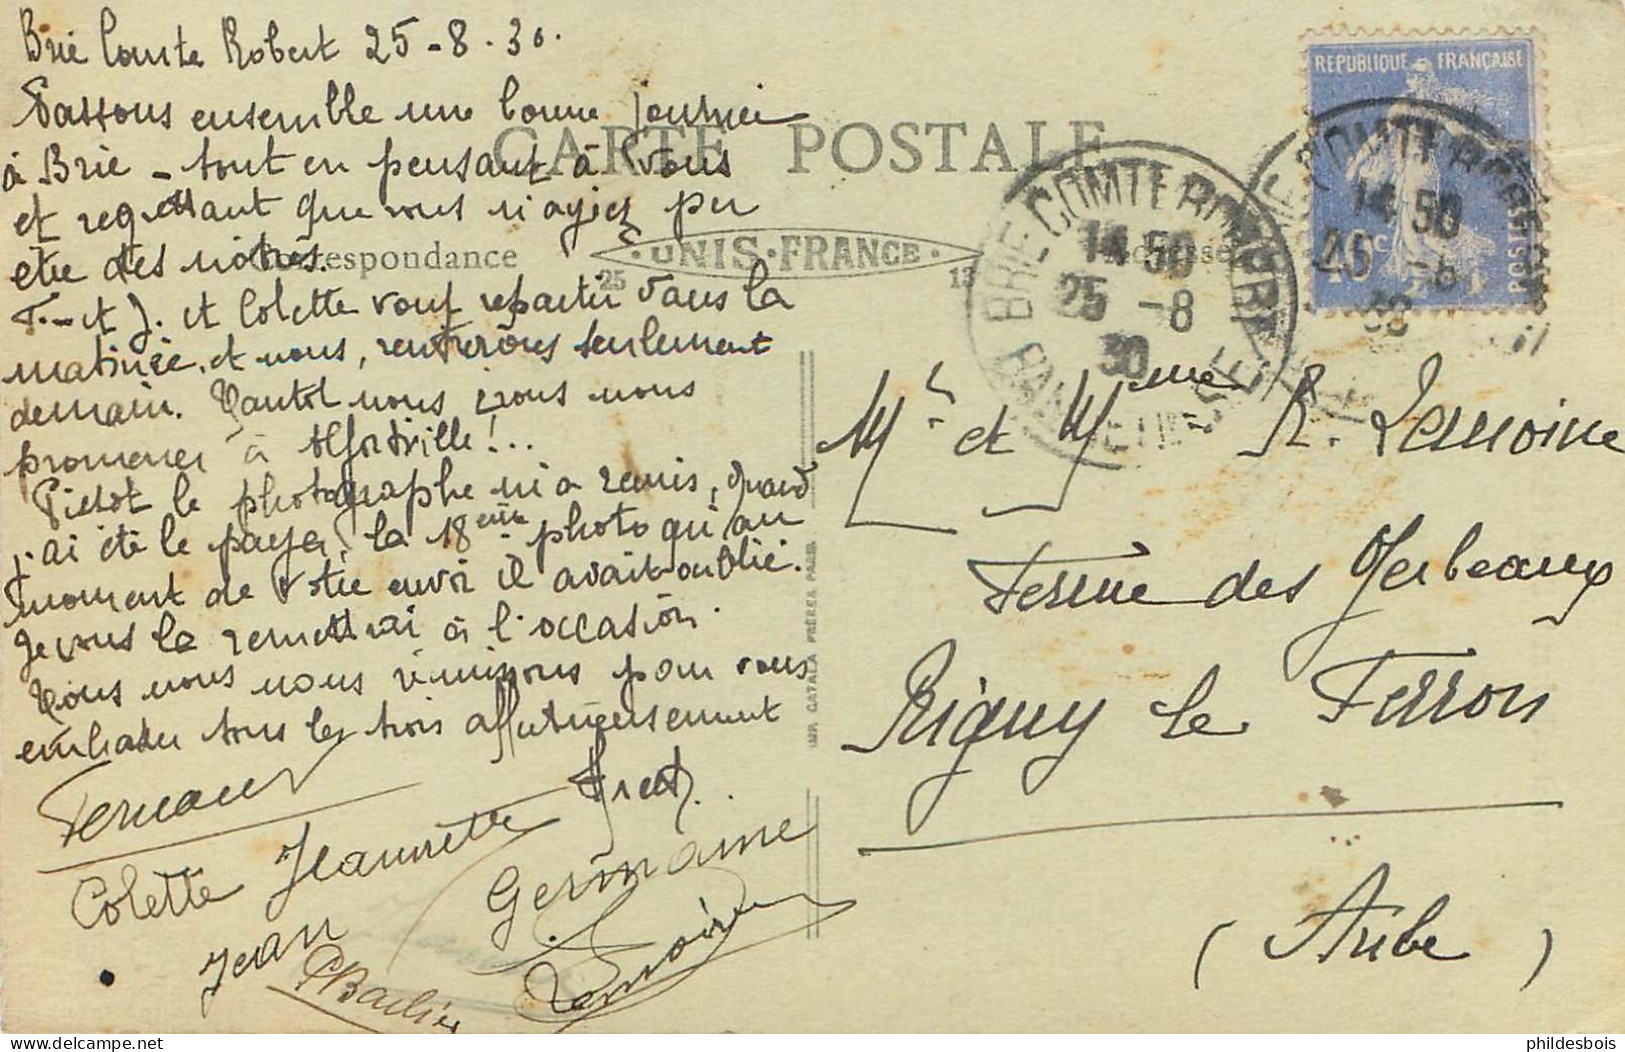 Brie Comte Robert 25-8-30.
Passons ensemble une bonne journée
à Brie - tout en pensant à vous
et regrettant que vous n'ayiez pu
être des nôtres.
F. et J. et Colette vont repartir dans la
matinée, et nous, rentrerons seulement
demain. Tantôt nous irons nous
promener à Alfortville!..
Pictot le photographe m'a remis, quand
j'ai été le payer, la 18ème photo qu'au
moment de votre envoi il avait oublié.
Je vous la remettrai à l'occasion.
Tous nous nous réunissons pour vous
embrasser tous les trois affectueusement
Fernand
Fred.
Colette Jeannette
Germaine
Jean
Lemoine
CARTE POSTALE
Correspondance
Adresse
UNIS-FRANCE
25 13
IMP. CATALA FRÈRES PARIS
REPUBLIQUE FRANÇAISE
POSTES
40c
BRIE COMTE ROBERT
14 50
25 -8
30
COMTE ROBERT
14 50
25 -8
30
Mr et Mme R. Lemoine
Ferme des Gerbeaux
Rigny le Ferron
(Aube)
phildesbois